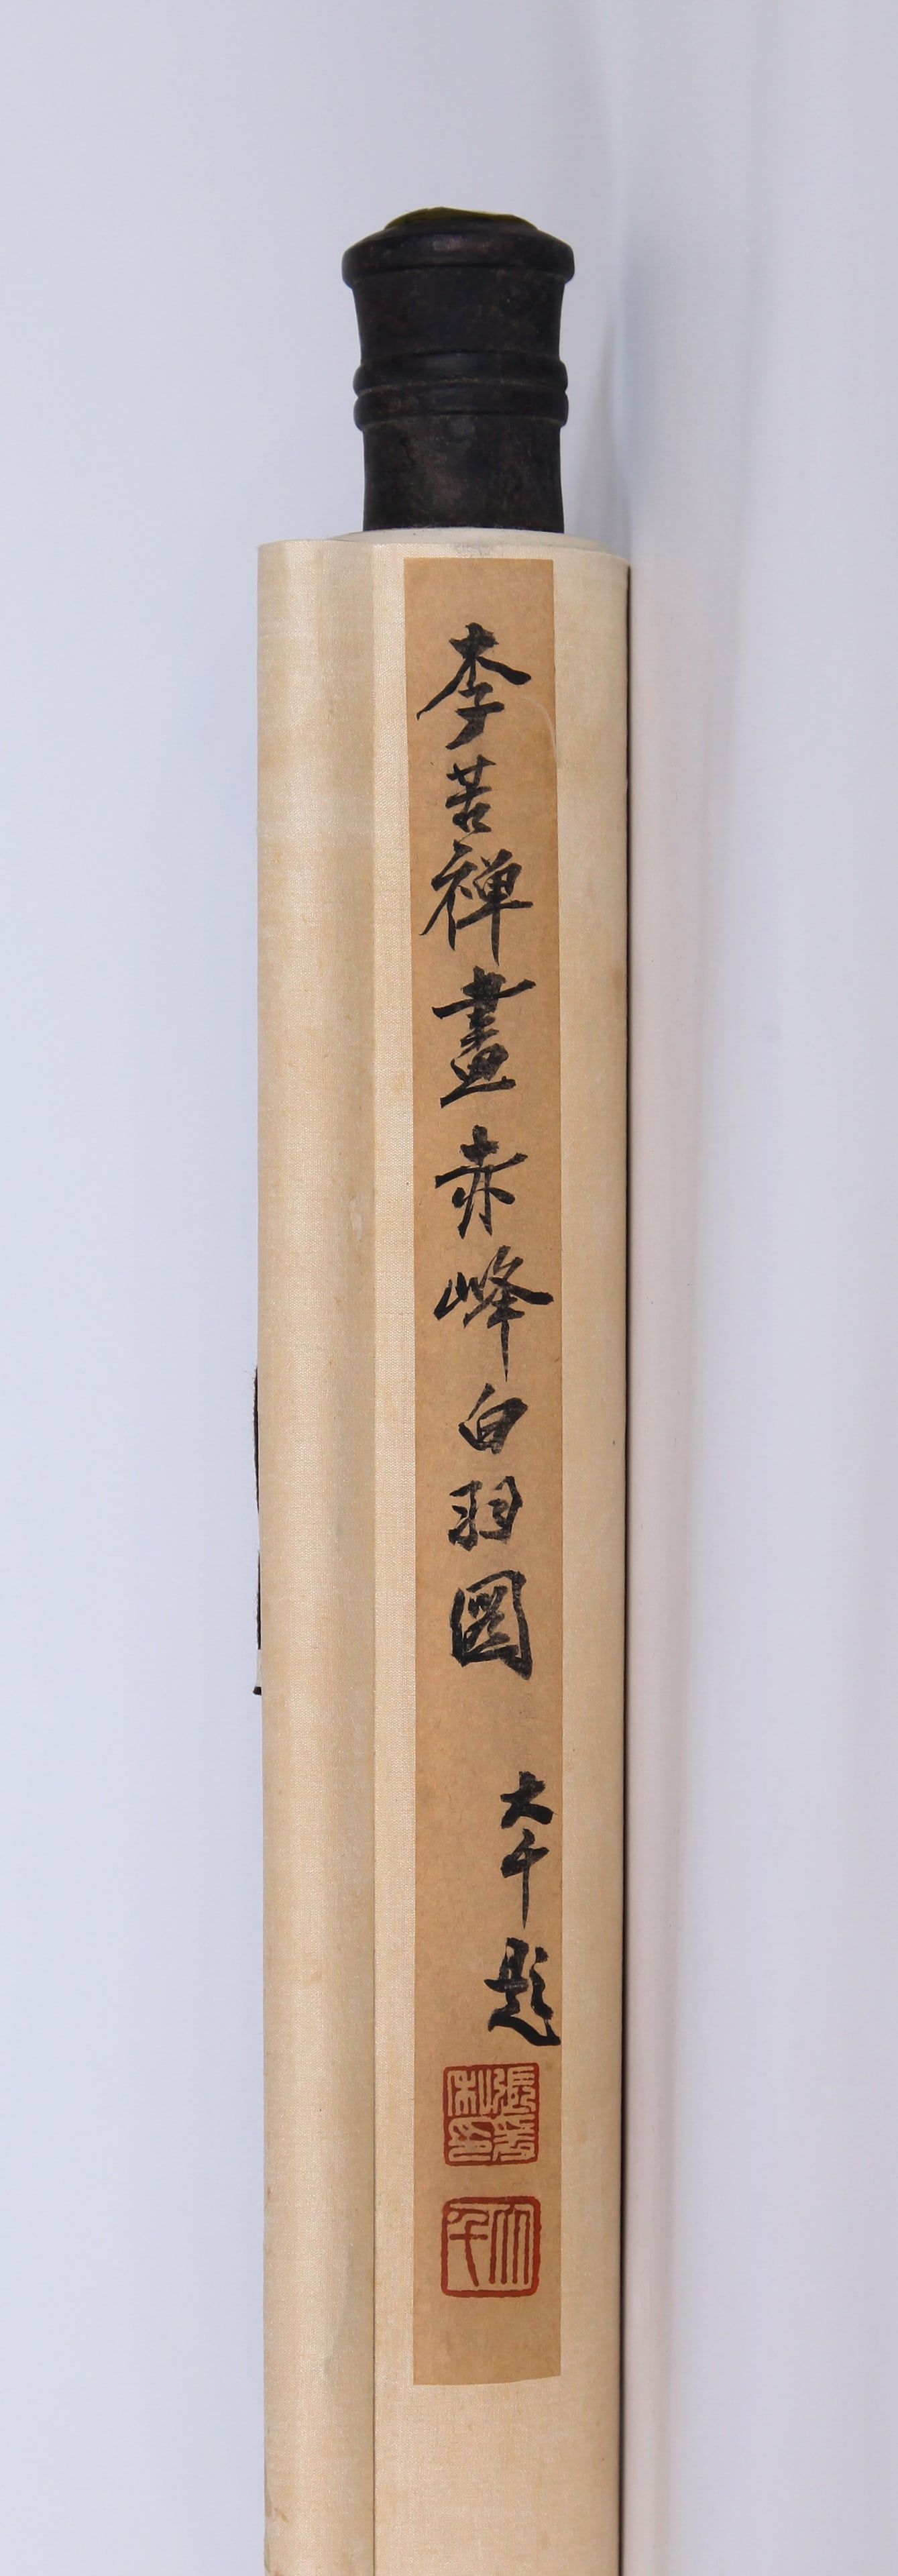 李苦禅畫赤峰白羽圖
大千題
張爰私印
大千